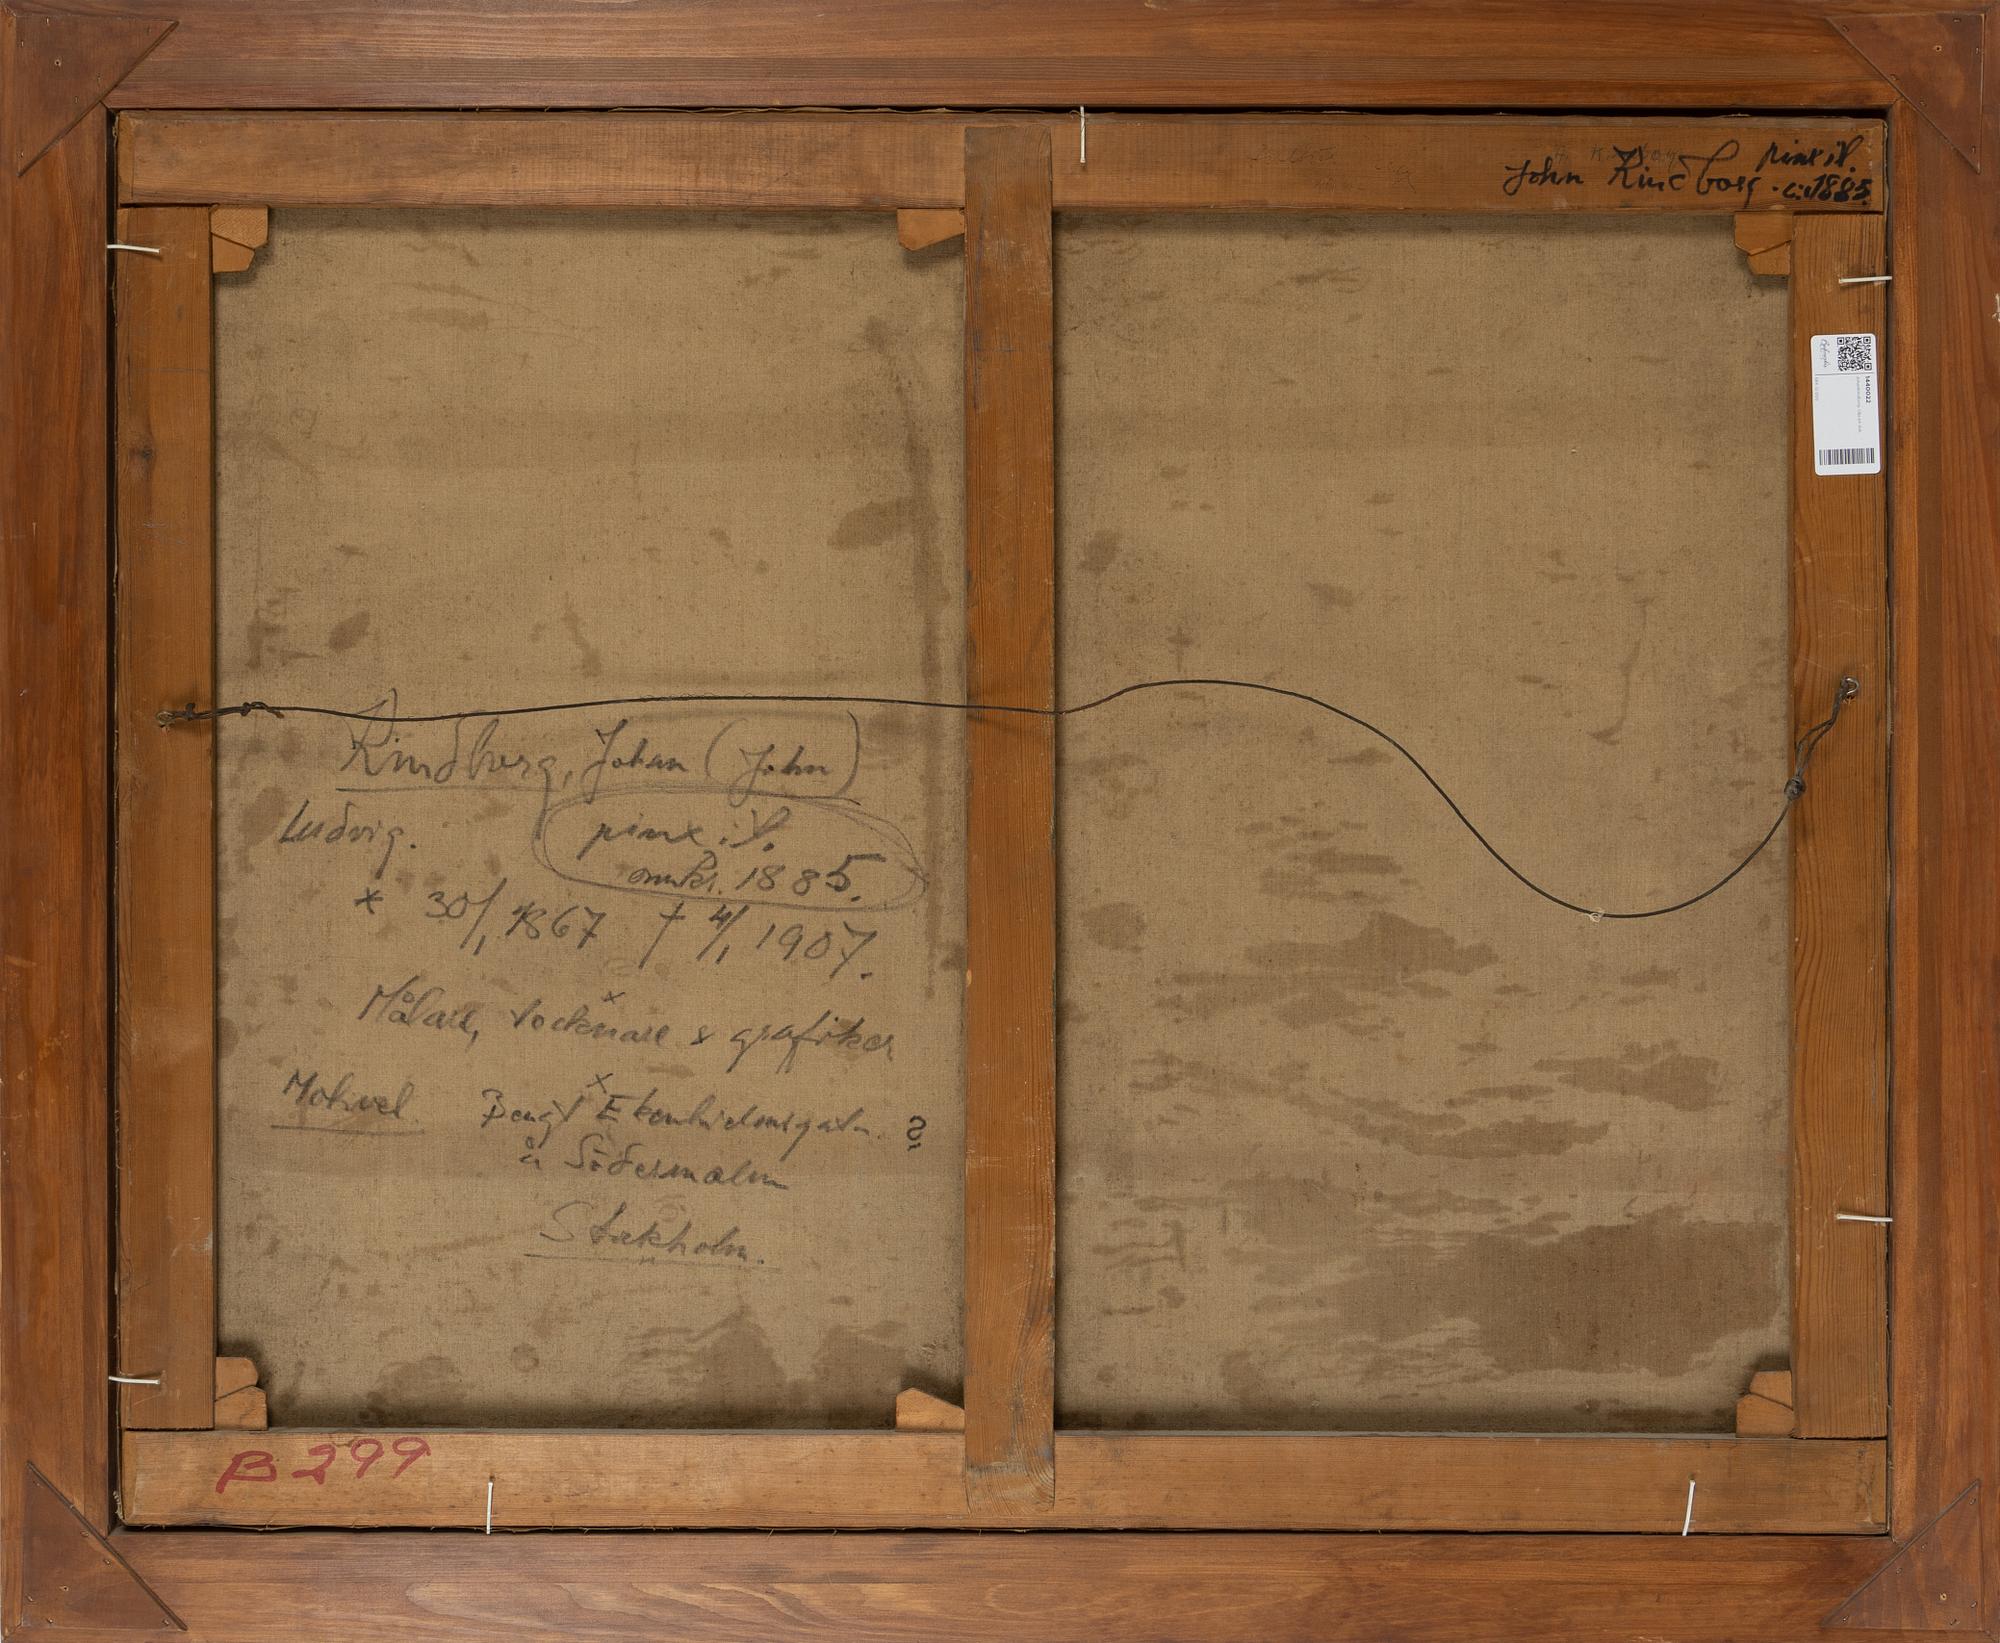 pinxit.
John Kindborg. c:a1885.
1440022
Kindborg, Johan (John)
Ludvig.
pinxit.
omkr. 1885.
* 30/1 1867 † 4/1 1907.
Målare, tecknare & grafiker
Motivet Bengt Ekenhielmsgatan. ?
å Södermalm
Stockholm.
B 299